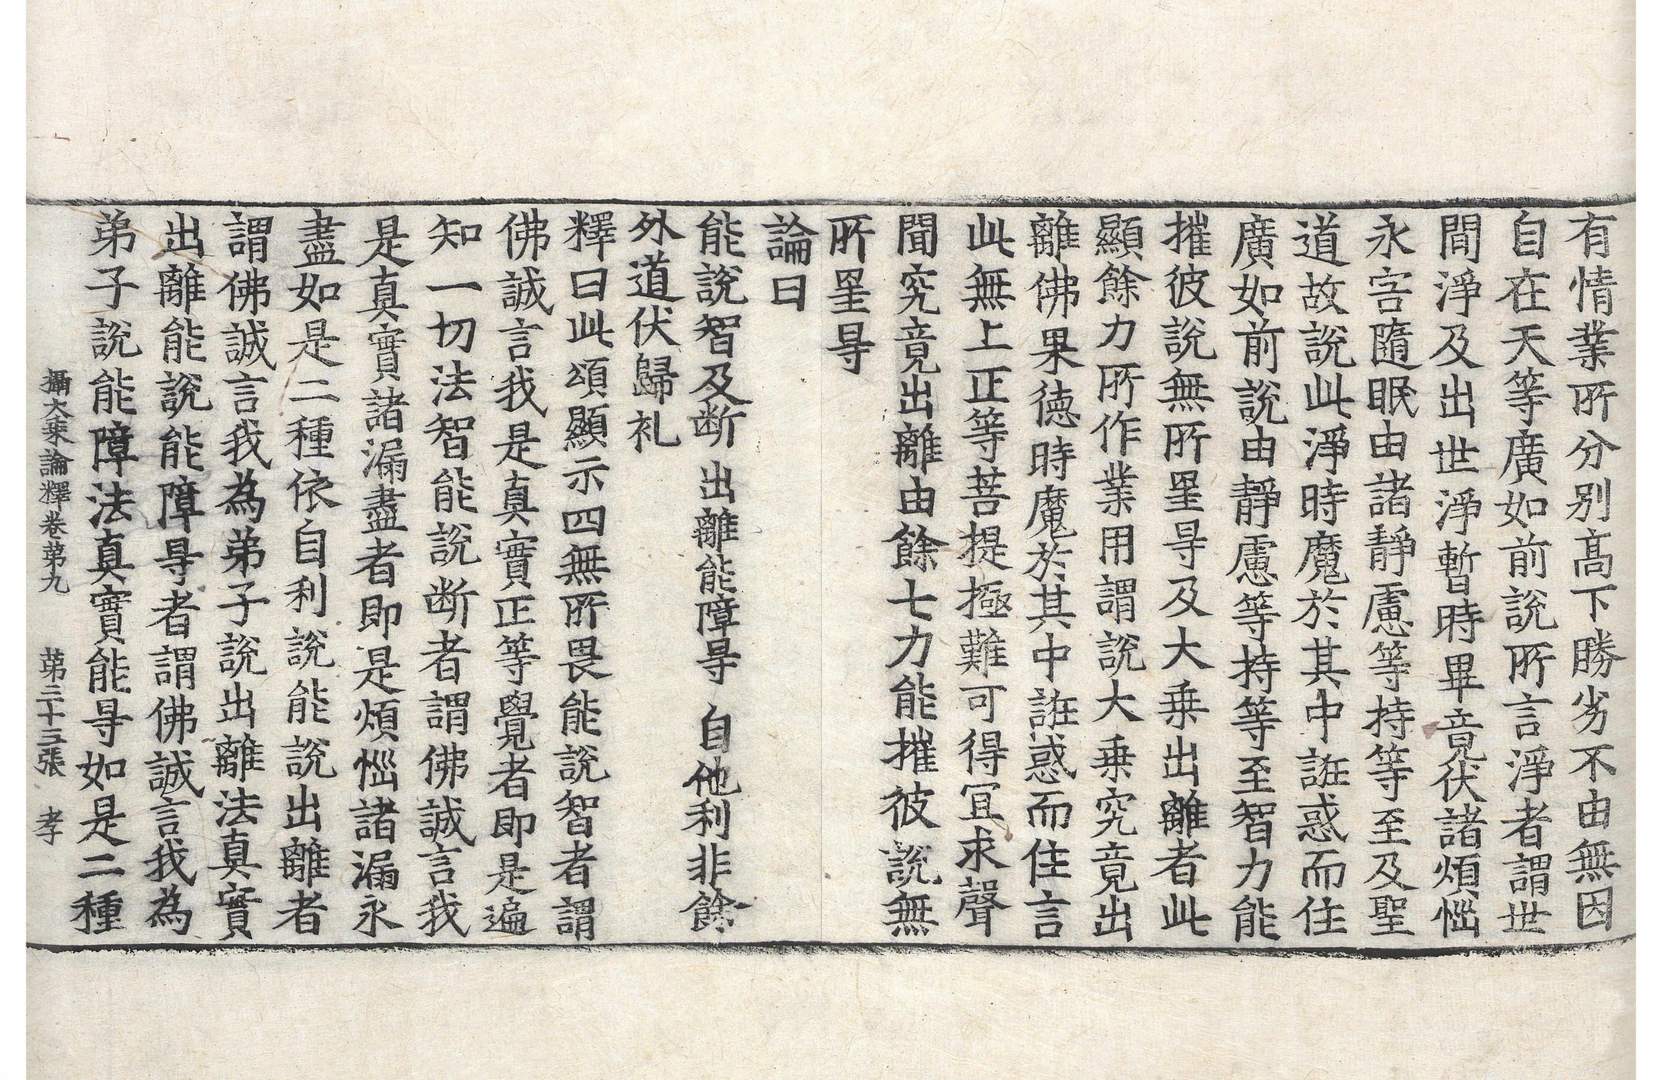 有情業所分別高下勝劣不由無因
自在天等廣如前說所言淨者謂世
間淨及出世淨暫時畢竟伏諸煩惱
永害隨眠由諸靜慮等持等至及聖
道故說此淨時魔於其中誑惑而住
廣如前說由靜慮等持等至智力能
摧彼說無所罣㝵及大乘出離者此
顯餘力所作業用謂說大乘究竟出
離佛果德時魔於其中誑惑而住言
此無上正等菩提極難可得冝求聲
聞究竟出離由餘七力能摧彼說無
所罣㝵
論曰
能說智及断 出離能障㝵 自他利非餘
外道伏歸礼
釋曰此頌顯示四無所畏能說智者謂
佛誠言我是真實正等覺者即是遍
知一切法智能說断者謂佛誠言我
是真實諸漏盡者即是煩惱諸漏永
盡如是二種依自利說能說出離者
謂佛誠言我為弟子說出離法真實
出離能說能障㝵者謂佛誠言我為
弟子說能障法真實能㝵如是二種
攝大乘論釋卷苐九 苐三十三張 孝